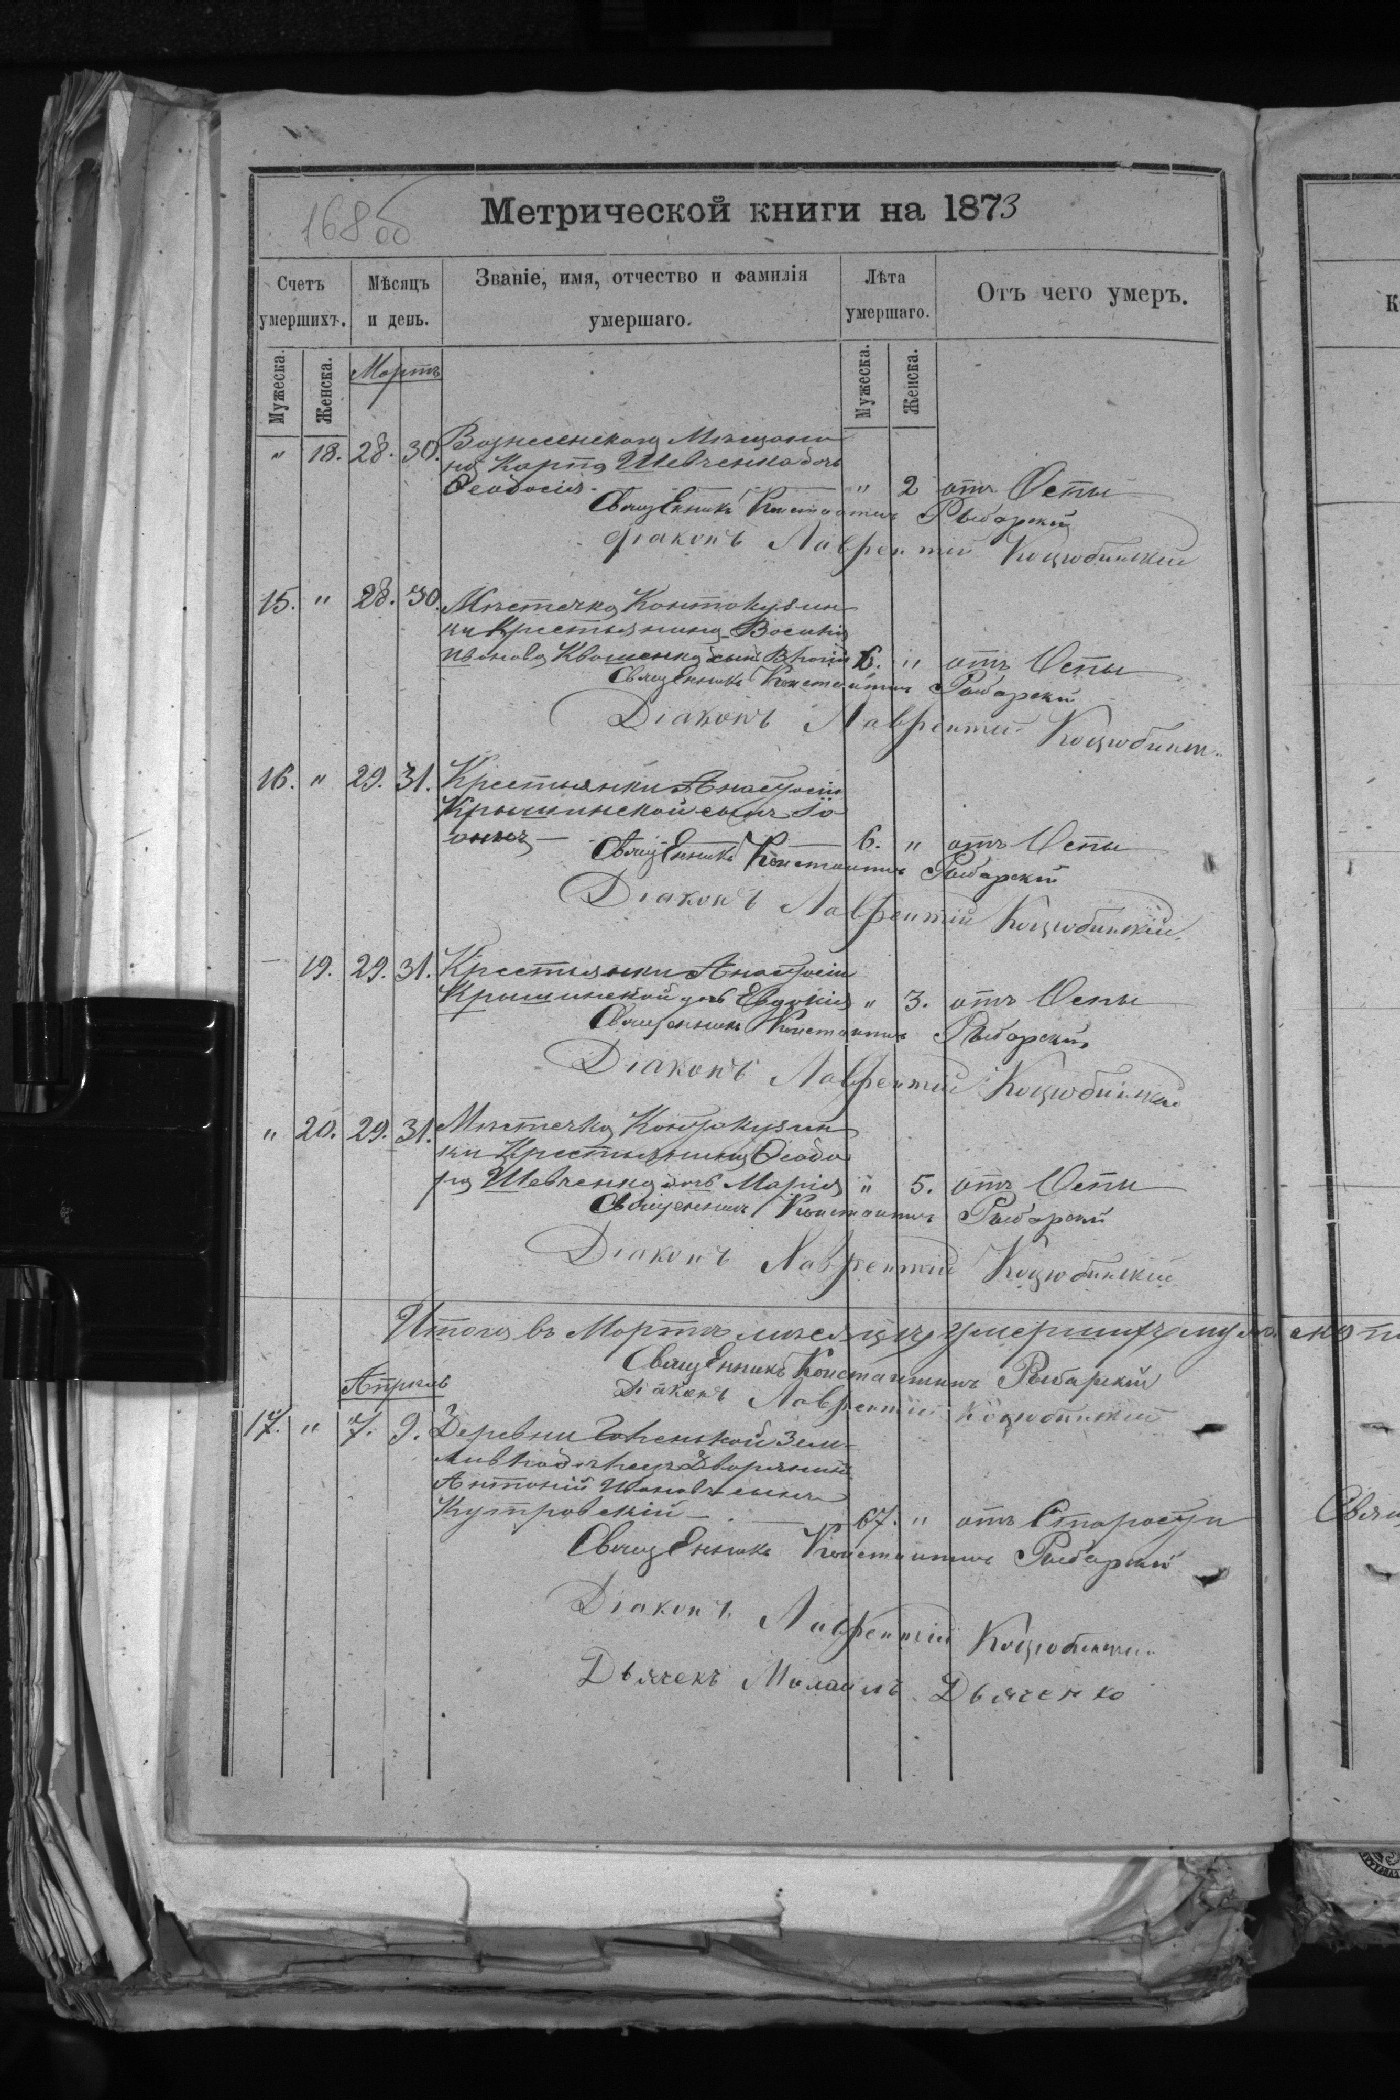 168 об
Метрической книги на 1873
Счетъ умершихъ.
Мѣсяцъ и день.
Званіе, имя, отчество и фамилія умершаго.
Лѣта умершаго.
Отъ чего умеръ.
Мужеска.
Женска.
Мартъ
Мужеска.
Женска.
" 18. 28. 30. Вознесенскаго Мѣщани
на Карпа Шевченка дочь
Феодосія — " 2 отъ Оспы
Священникъ Константинъ Рыбарскій
Діаконъ Лаврентій Коцюбинскій
15. " 28. 30. Мѣстечка Кантакузен
ки Крестьянина Василія
Иванова Квашенка сынъ 6. " отъ Оспы
Священникъ Константинъ Рыбарскій
Діаконъ Лаврентій Коцюбинск
16. " 29. 31. Крестьянки Анастасіи
Крышинской сынъ Іо
аннъ — 6. " отъ Оспы
Священникъ Константинъ Рыбарскій
Діаконъ Лаврентій Коцюбинскій
— 19. 29. 31. Крестьянки Анастасіи
Крышинской дочь Евдокія " 3. отъ Оспы
Священникъ Константинъ Рыбарскій
Діаконъ Лаврентій Коцюбинскій
" 20. 29. 31. Мѣстечка Кантакузен
ки Крестьянина Феодо
ра Шевченка дочь Марія " 5. отъ Оспы
Священникъ Константинъ Рыбарскій
Діаконъ Лаврентій Коцюбинскій
Итого въ Мартѣ мѣсяцѣ умершихъ
Священникъ Константинъ Рыбарскій
Діаконъ Лаврентій Коцюбинскій
Апрѣль
17. " 7. 9. Деревни
Дворянинъ
Антоній Ивановъ сынъ
Кутровскій — 67. " отъ Старости
Священникъ Константинъ Рыбарскій
Діаконъ Лаврентій Коцюбинскій
Дьячекъ Дьяченко